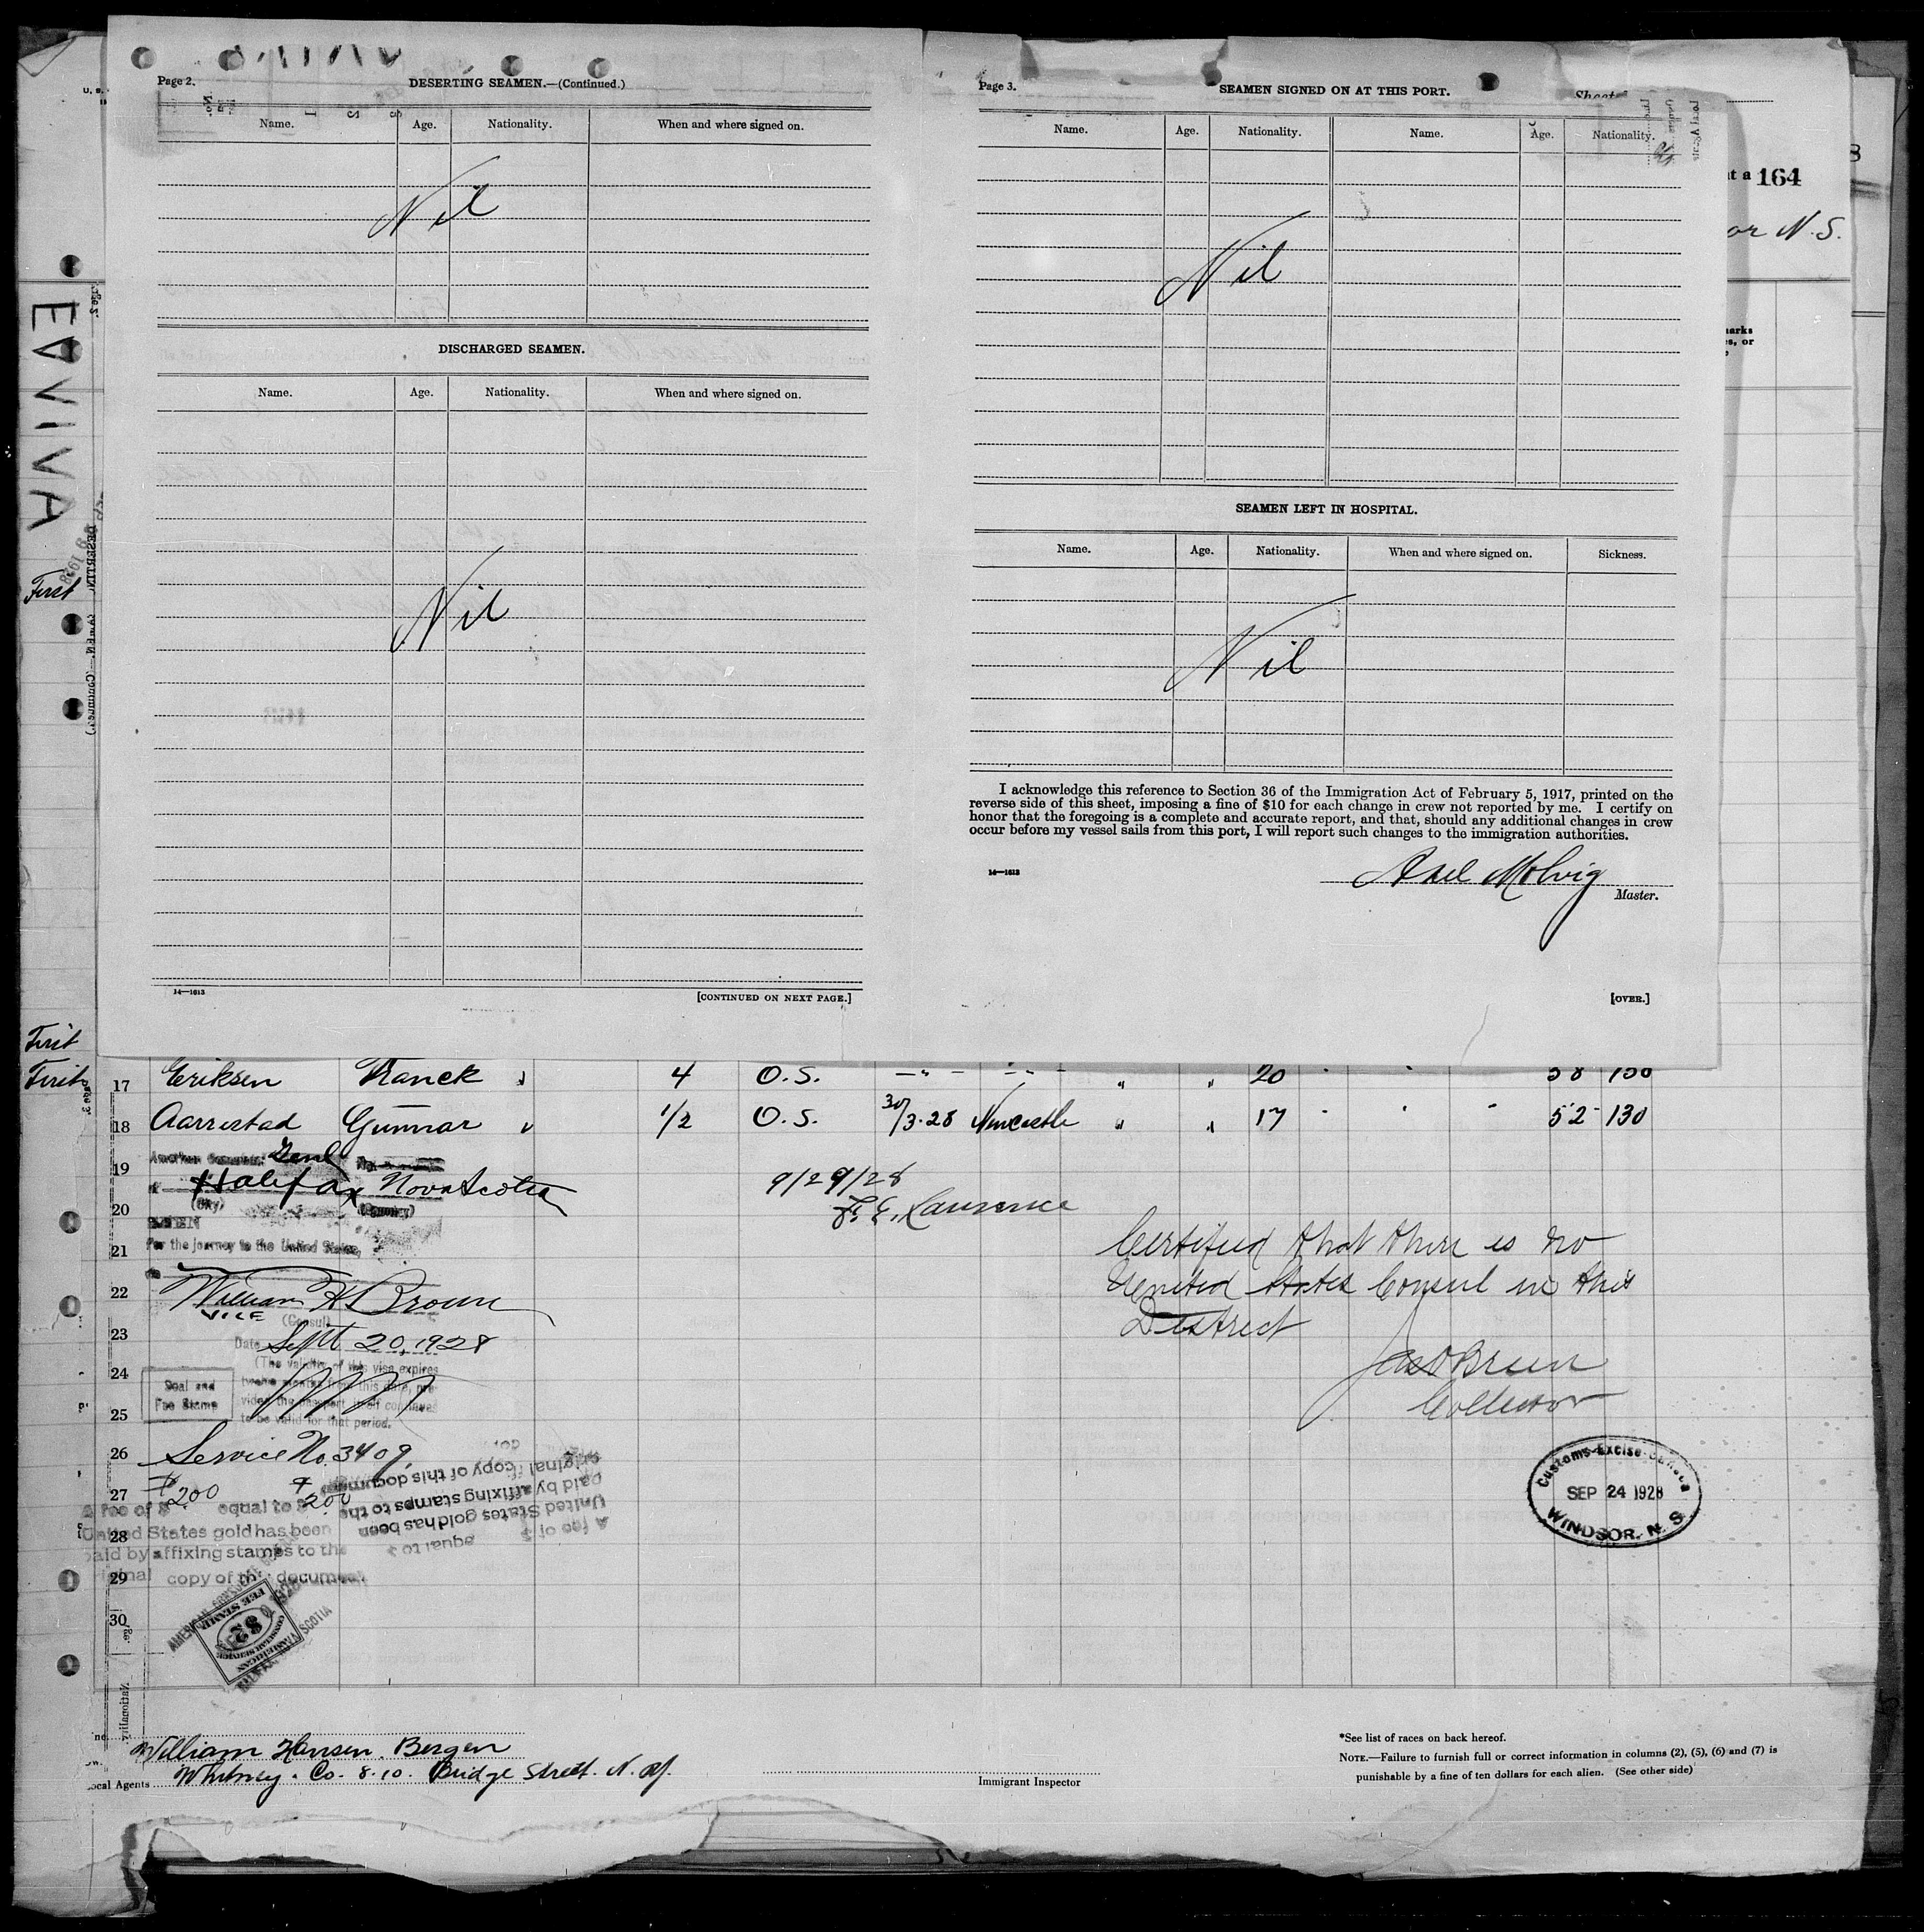 Page 2.
DESERTING SEAMEN.—(Continued.)
Name. Age. Nationality. When and where signed on.
Nil
DISCHARGED SEAMEN.
Name. Age. Nationality. When and where signed on.
Nil
14—1613
[CONTINUED ON NEXT PAGE.]
Page 3.
SEAMEN SIGNED ON AT THIS PORT.
Name. Age. Nationality. Name. Age. Nationality.
Nil
SEAMEN LEFT IN HOSPITAL.
Name. Age. Nationality. When and where signed on. Sickness.
Nil
I acknowledge this reference to Section 36 of the Immigration Act of February 5, 1917, printed on the
reverse side of this sheet, imposing a fine of $10 for each change in crew not reported by me. I certify on
honor that the foregoing is a complete and accurate report, and that, should any additional changes in crew
occur before my vessel sails from this port, I will report such changes to the immigration authorities.
14—1613
Axel Molvig
Master.
[OVER.]
Sheet
164
or N.S.
EVVIVA
First
First
First
17 Eriksen Franck 4 O.S. 20 58 150
18 Aarrestad Gunnar 1/2 O.S. 30/3-28 Newcastle " " 17 52 130
19
Halifax Nova Scotia 9/29/28
(City) (Country)
20 F. E. Lawrence
21 For the journey to the United States,
Certified that there is no
United States Consul in this
District
22 William H Brown
VICE (Consul)
23 Date Sept 20, 1928
(The validity of this visa expires
24 twelve months from this date, pro-
vided the passport itself continues
25 to be valid for that period.
Seal and
Fee Stamp
Jas OBrien
Collector
26 Service No. 3409
27 $200 $200
A fee of $ equal to $
United States gold has been
28 paid by affixing stamps to the
29 original copy of this document
30
A fee of $ equal to $
United States gold has been
paid by affixing stamps to the
original copy of this document
AMERICAN CONSULAR SERVICE
FEE STAMP
$2
Customs-Excise-Canada
SEP 24 1928
WINDSOR. N. S.
William Hansen. Bergen
Local Agents Whitney. Co. 8-10. Bridge Street. N. Y.
Immigrant Inspector
*See list of races on back hereof.
NOTE.—Failure to furnish full or correct information in columns (2), (5), (6) and (7) is
punishable by a fine of ten dollars for each alien. (See other side)